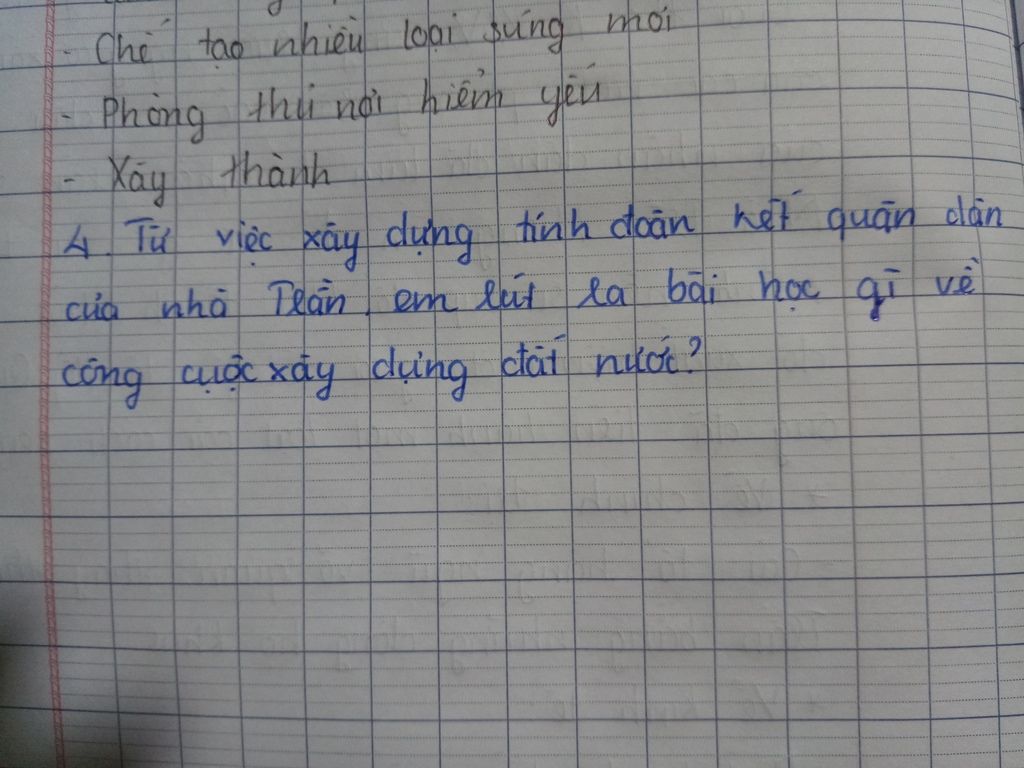 - Chế tạo nhiều loại súng mới
- Phòng thủ nơi hiểm yếu
- Xây thành
4. Từ việc xây dựng tính đoàn kết quân dân
của nhà Trần, em rút ra bài học gì về
công cuộc xây dựng đất nước?